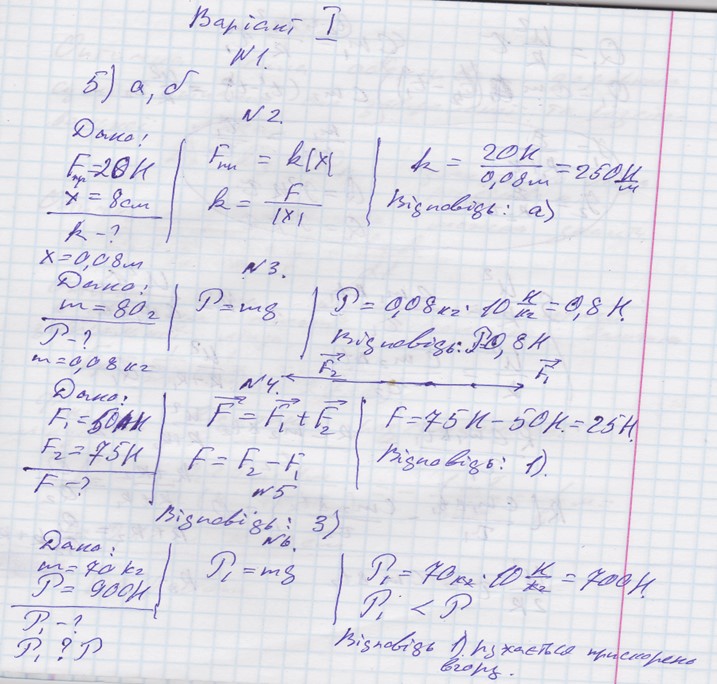 Варіант I
№1.
5) а, б
№2.
Дано:
Fпр=20Н
x = 8см
k - ?
x=0,08м
Fпр = k|x|
k = F/|x|
k = 20Н/0,08м = 250 Н/м
Відповідь: а)
№3.
Дано:
m = 80г
P - ?
m=0,08кг
P=mg
P = 0,08кг · 10 Н/кг = 0,8Н.
Відповідь: P=0,8Н
F₂ F₁
№4.
Дано:
F₁=50Н
F₂ = 75Н
F - ?
F = F₁ + F₂
F = F₂ - F₁
F = 75Н - 50Н = 25Н.
Відповідь: 1).
№5
Відповідь: 3)
№6.
Дано:
m = 70кг
P = 900Н
P₁ - ?
P₁ ? P
P₁ = mg
P₁ = 70кг · 10 Н/кг = 700Н.
P₁ < P
Відповідь 1) рухається прискорено
вгору.